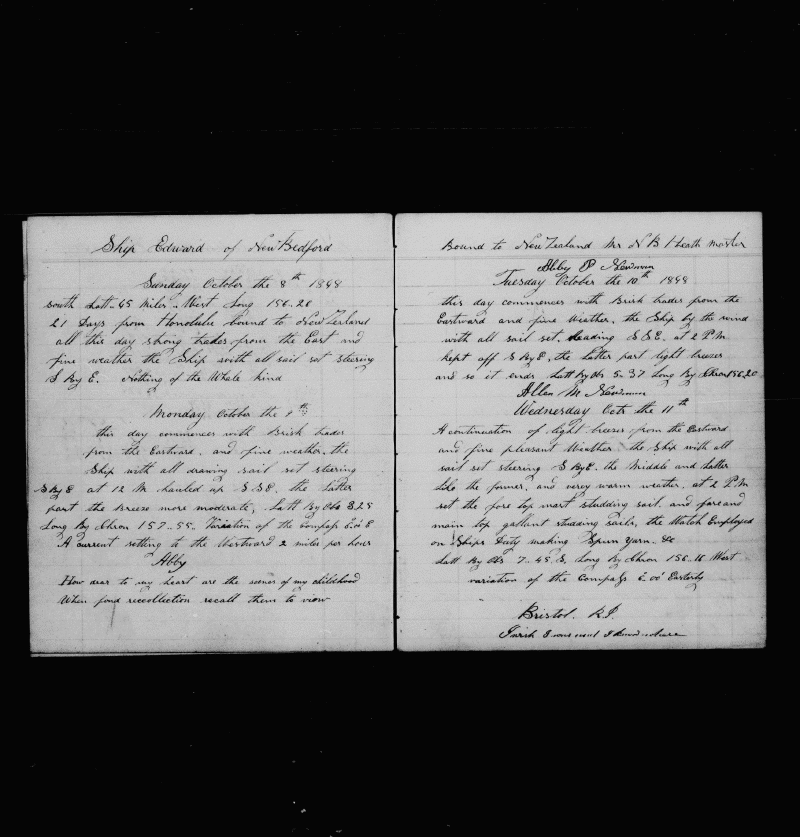 Ship Edward of New Bedford
Sunday October the 8th 1848
South Latt 45 Miles. West Long 156.28
21 Days from Honolulu bound to New Zerland
all this day strong trades from the East and
fine weather the Ship with all sail set steering
S By E. Nothing of the Whale kind
Monday October the 9th
this day commences with Brisk trades
from the Eastward. and fine weather. the
Ship with all drawing sail set steering
S By E at 12 M hauled up S S E. the latter
part the Breeze more moderate, Latt By Obs 3.25
Long By Chron 157-55. Variation of the Compass E
A current setting to the Westward 2 miles per hour
Abby
How dear to my heart are the scenes of my childhood
When fond reccollection recall them to view
Bound to New Zealand Mr N B Heath Master
Abby P Newman
Tuesday October the 10th 1848
this day commences with Brisk trades from the
Eastward and fine Weather. the Ship by the wind
with all sail set. heading S S E. at 2 P.M
kept off S By E, the latter part light breezes
and so it ends Latt By Obs 5-37 Long By Chron 156.20
Allen M Newman
Wednesday Octr the 11th
A continuation of light breezes from the Eastward
and fine pleasant Weather the Ship with all
sail set steering S By E. the Middle and Latter
like the former, and verry warm weather. at 2 P.M
set the fore top mast studding sail. and fore and
main top gallant studding sails, the Watch Employed
on Ships Duty making Spun Yarn. &c
Latt By Obs 7-45 S. Long By Chron 156.16 West
variation of the Compass Easterly
Bristol. R.I.
I wish I was